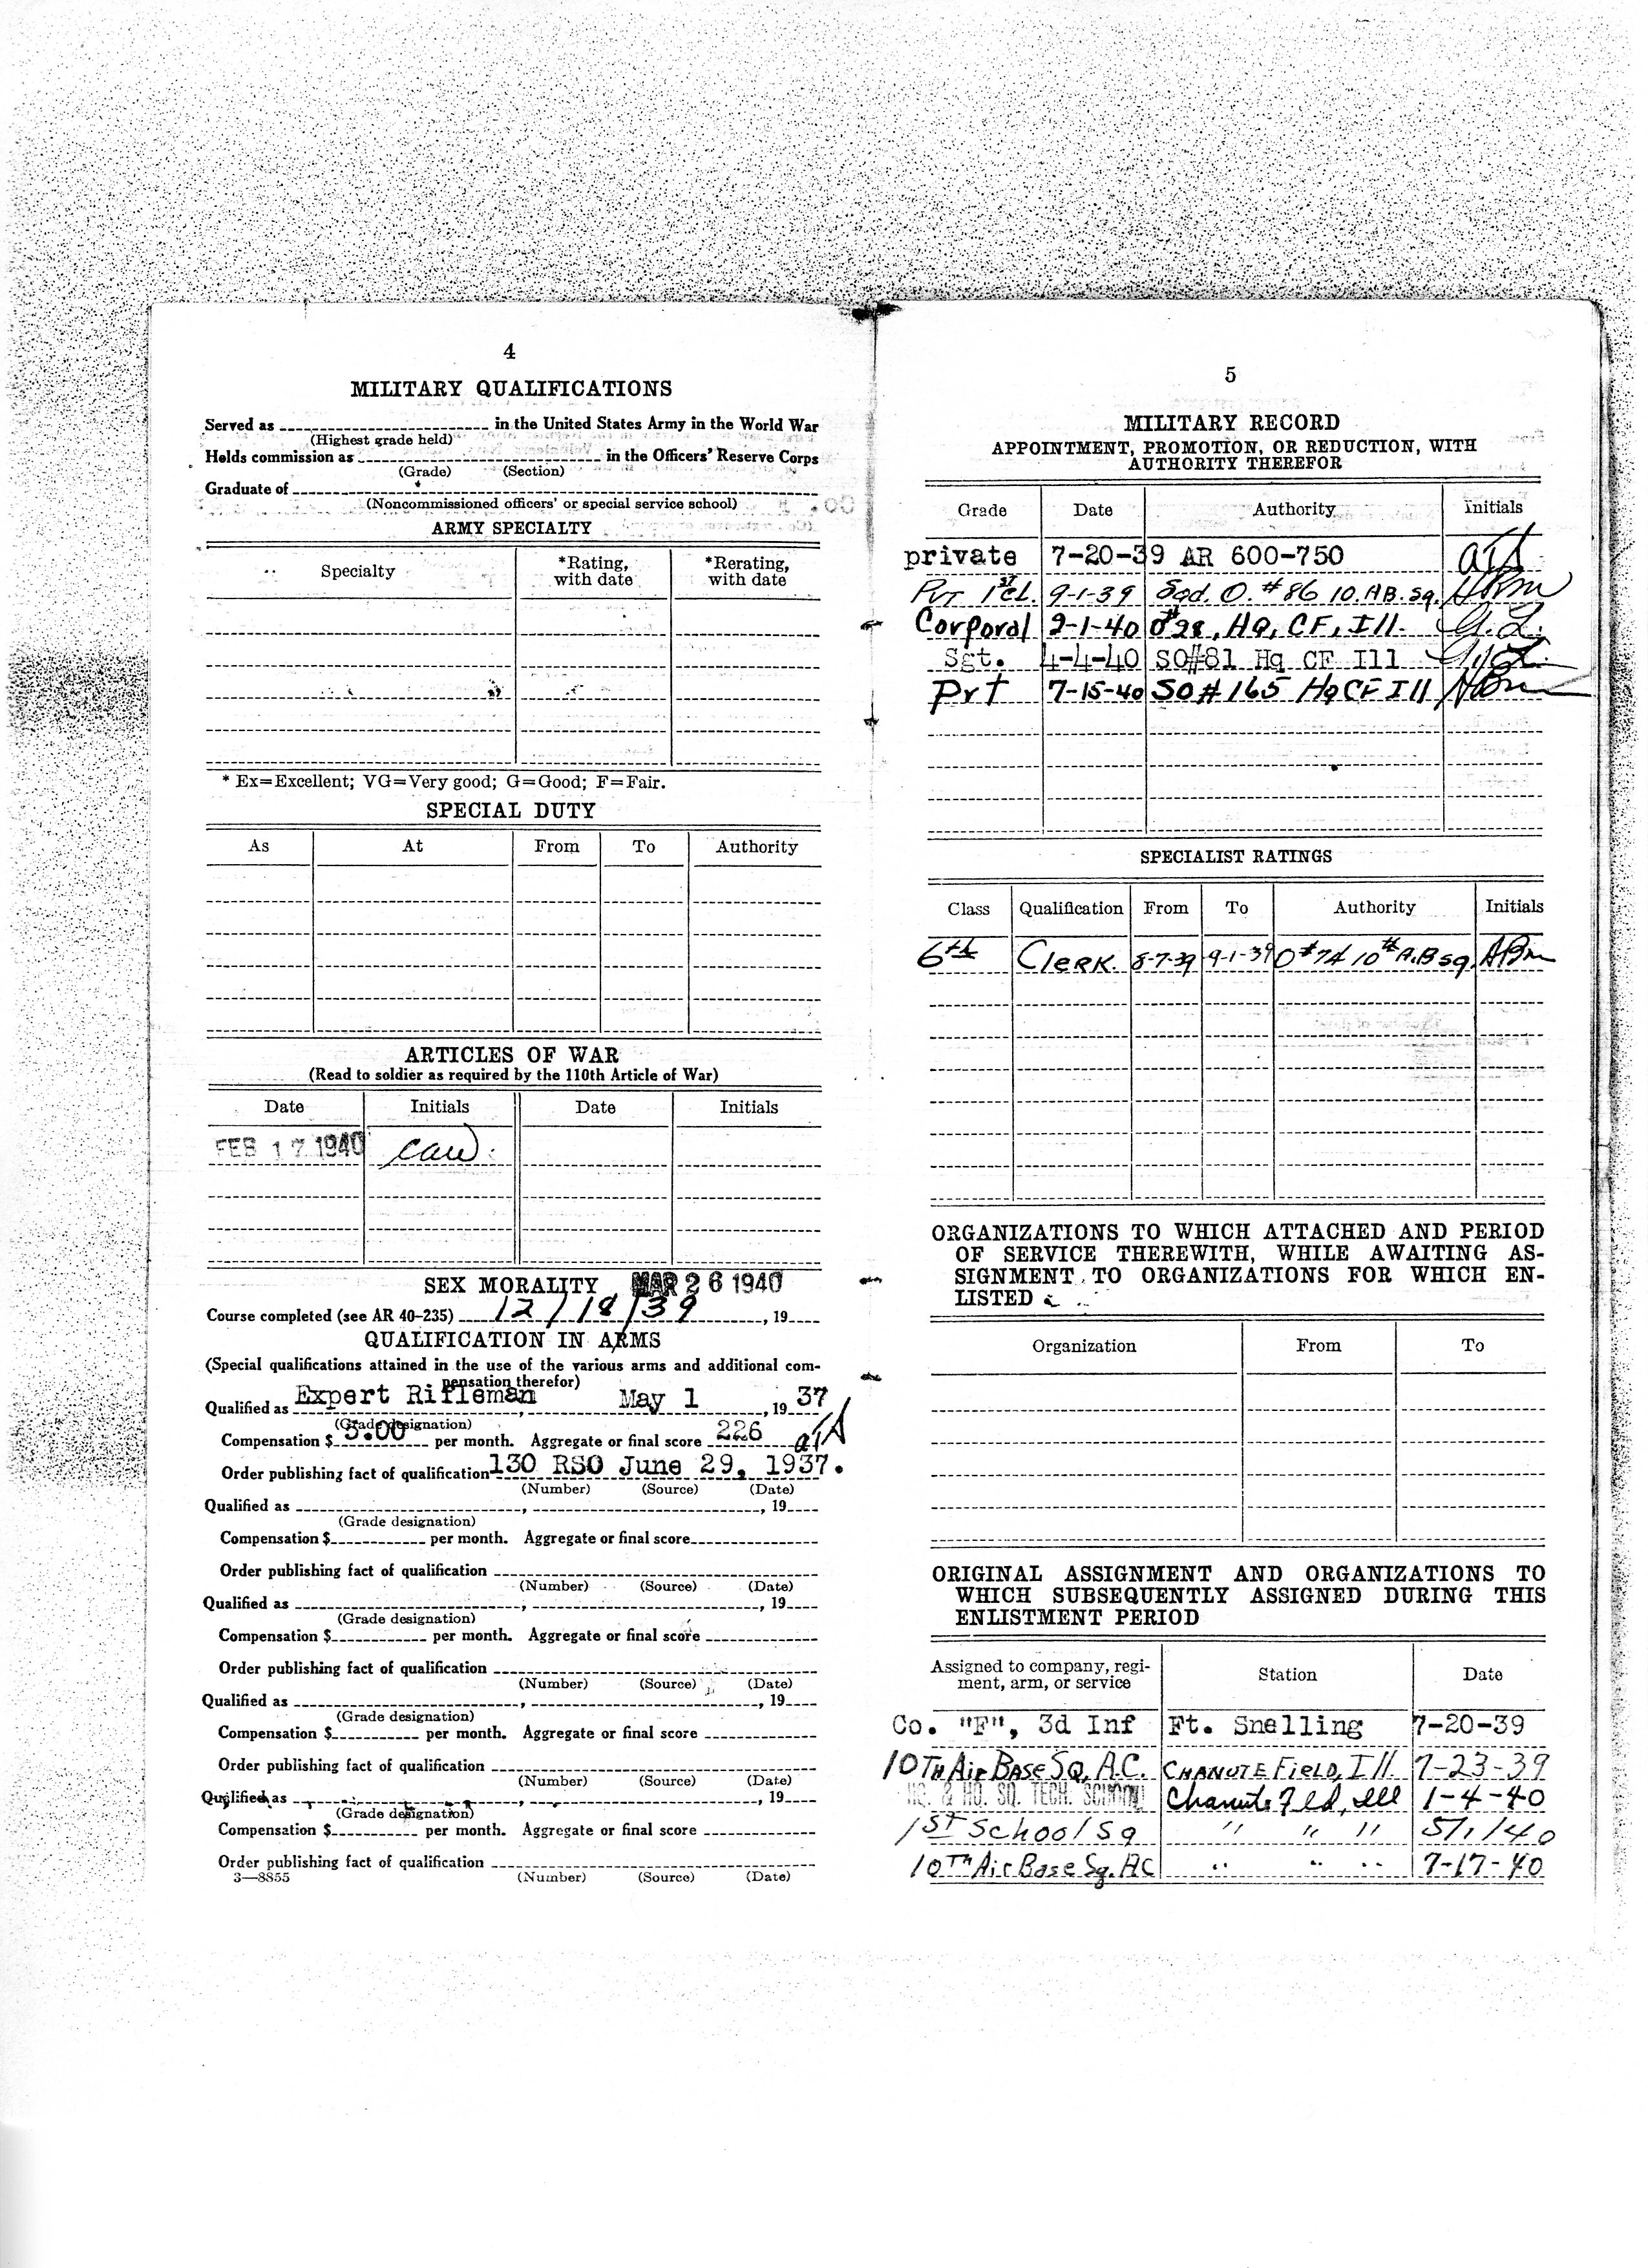 4
MILITARY QUALIFICATIONS
Served as in the United States Army in the World War
(Highest grade held)
Holds commission as in the Officers' Reserve Corps
(Grade) (Section)
Graduate of
(Noncommissioned officers' or special service school)
ARMY SPECIALTY
Specialty *Rating, with date *Rerating, with date
* Ex=Excellent; VG=Very good; G=Good; F=Fair.
SPECIAL DUTY
As At From To Authority
ARTICLES OF WAR
(Read to soldier as required by the 110th Article of War)
Date Initials Date Initials
FEB 17 1940 caw.
SEX MORALITY MAR 26 1940
Course completed (see AR 40-235) 12/18/39, 19
QUALIFICATION IN ARMS
(Special qualifications attained in the use of the various arms and additional com-
pensation therefor)
Qualified as Expert Rifleman, May 1, 19 37
(Grade designation)
Compensation $ 5.00 per month. Aggregate or final score 226
Order publishing fact of qualification 130 RSO June 29, 1937.
(Number) (Source) (Date)
Qualified as , , 19
(Grade designation)
Compensation $ per month. Aggregate or final score
Order publishing fact of qualification
(Number) (Source) (Date)
Qualified as , , 19
(Grade designation)
Compensation $ per month. Aggregate or final score
Order publishing fact of qualification
(Number) (Source) (Date)
Qualified as , , 19
(Grade designation)
Compensation $ per month. Aggregate or final score
Order publishing fact of qualification
(Number) (Source) (Date)
Qualified as , , 19
(Grade designation)
Compensation $ per month. Aggregate or final score
Order publishing fact of qualification
3—8855 (Number) (Source) (Date)
5
MILITARY RECORD
APPOINTMENT, PROMOTION, OR REDUCTION, WITH
AUTHORITY THEREFOR
Grade Date Authority Initials
private 7-20-39 AR 600-750
Pvt 1st cl. 9-1-39 Sqd. O. #86 10. AB. Sq.
Corporal 2-1-40 O#28, HQ, CF, Ill. G.L.
Sgt. 4-4-40 SO#81 Hq CF Ill
Prt 7-15-40 SO# 165 Hq CF Ill
SPECIALIST RATINGS
Class Qualification From To Authority Initials
6th Clerk. 8-7-39 9-1-39 O#74 10th A.B sq.
ORGANIZATIONS TO WHICH ATTACHED AND PERIOD
OF SERVICE THEREWITH, WHILE AWAITING AS-
SIGNMENT TO ORGANIZATIONS FOR WHICH EN-
LISTED
Organization From To
ORIGINAL ASSIGNMENT AND ORGANIZATIONS TO
WHICH SUBSEQUENTLY ASSIGNED DURING THIS
ENLISTMENT PERIOD
Assigned to company, regi-
ment, arm, or service Station Date
Co. "F", 3d Inf Ft. Snelling 7-20-39
10TH Air Base SQ, A.C. CHANUTE Field, Ill. 7-23-39
HQ. & HQ. SQ. TECH. SCHOOL Chanute Fld, Ill 1-4-40
1ST School Sq " " " 5/1/40
10TH Air Base Sq. AC " " " 7-17-40